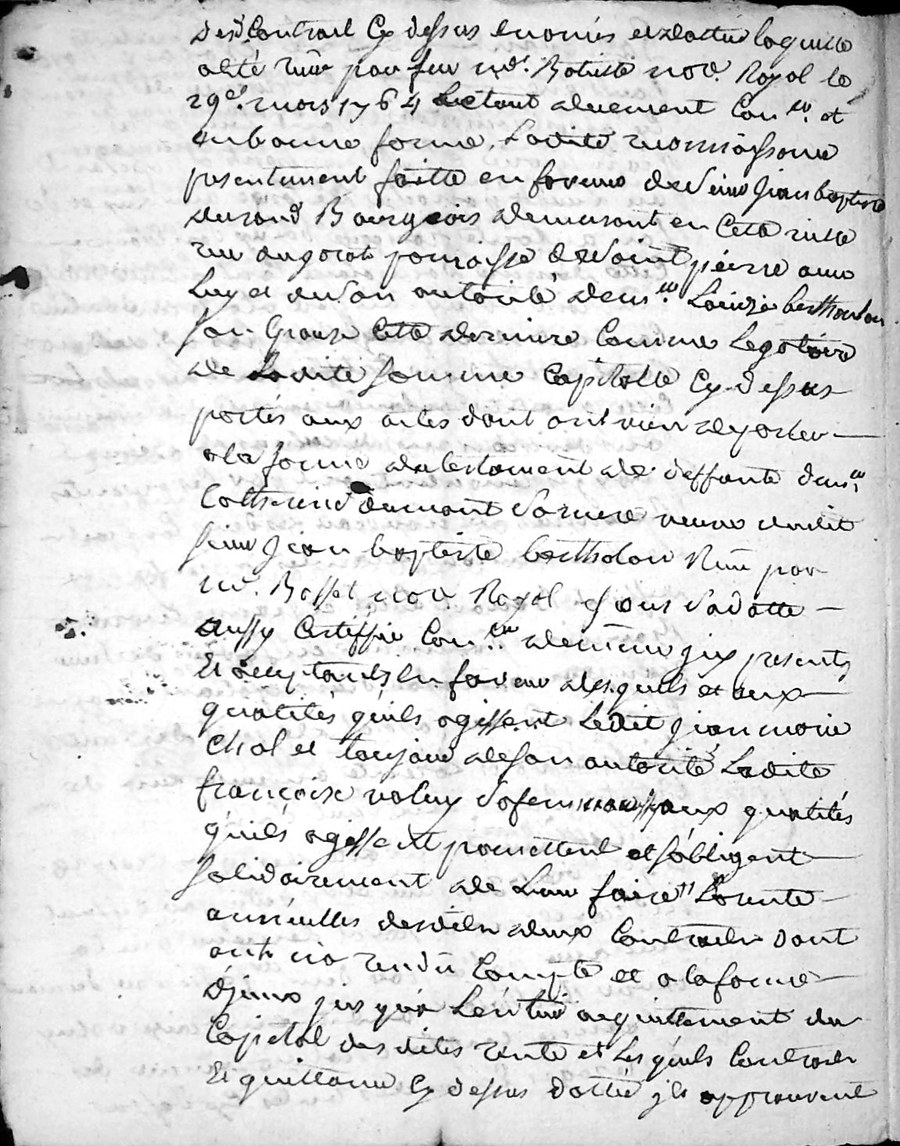 desd. Contrail Cy dessus Enoncés et dattée laquelle
a été Recüe par feu me. Batiste not. Royal le
29e. mars 1764 Lectant duement Con.lée et
en bonne forme, Laditte reconnoissance
presentement faitte en faveur de Sieur Jean baptiste
durand Bourgeois demeurant en Cette ville
rue paroisse de Saint pierre avec
Luy et de son autorité dem.lle Louise bertholon
son Epouse Cette derniere Comme Legataire
de Ladite somme Capitalle Cy dessus
portés aux actes dont ont vien de parler
a la forme du testament de deffunte dem.lle
Catherine dumont veuve dudit
sieur Jean baptiste bertholon Reçu par
me. Basset not Royal sous sa datte
aussy Certiffié Con.lée de même jcy presents
Et acceptants En faveur desquels et aux
qualités quils agissent Ledit Jean marie
Chol et toujours de son autorité Ladite
françoise valuy sa femme aux qualités
quils agissent promettent et s'obligent
solidairement de Leur faire La rente
annuelles desdits deux Contrats dont
ont rendu Compte et a la forme
d'jceux jusqu'a L'entier acquittement du
Capital des dites rente et Lesquels Contrats
Et quittance Cy dessus datté jls approuvent